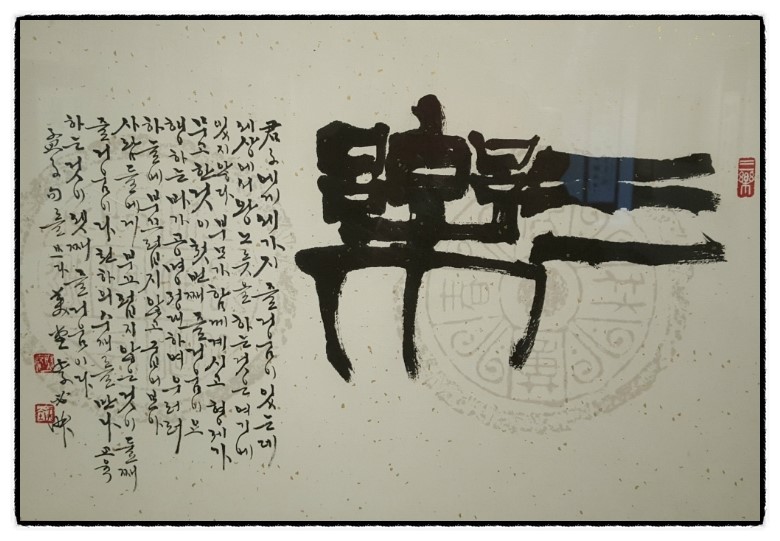 三樂
三樂
君子에게 세가지 즐거움이 있는데
세상에서 왕노릇을 하는것은 여기에
있지않다 부모가 함께계시고 형제가
무고한것이 첫번째 즐거움이오
행하는바가 공명정대하며 우러러
하늘에 부끄럽지않고 굽어보아
사람들에게 부끄럽지않은것이 둘째
즐거움이다 천하의 수재를 만나 교육
하는것이 셋째 즐거움이다
孟子句를 쓰다 堂 李